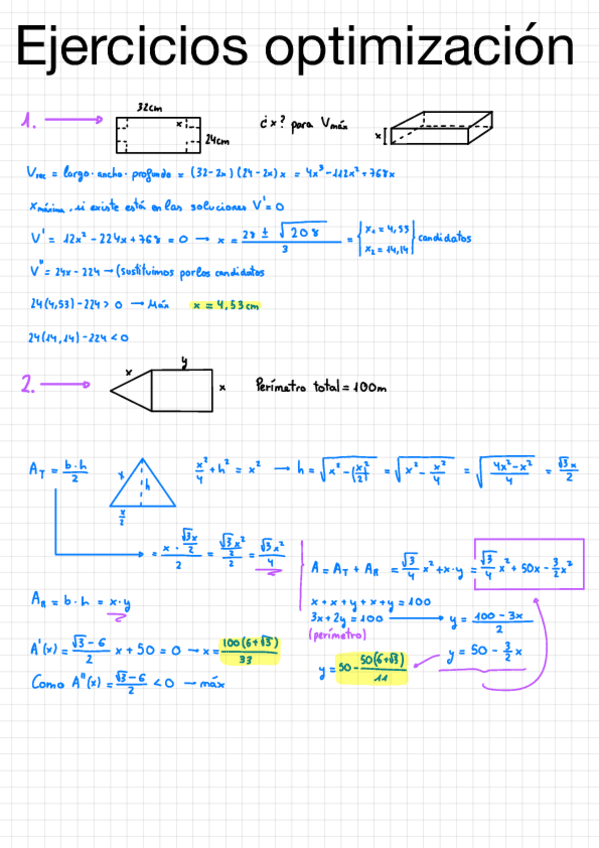 Ejercicios optimización
1. → 32cm x 24cm ¿x? para Vmáx x
Vrec = largo · ancho · profundo = (32-2x)(24-2x)x = 4x³-112x²+768x
xmáxima, si existe está en las soluciones V'=0
V' = 12x² - 224x + 768 = 0 → x = (28 ± √208)/3 = { x₁ = 4,53 x₂ = 14,14 } candidatos
V'' = 24x - 224 → (sustituimos por los candidatos
24(4,53) - 224 > 0 → Máx x = 4,53cm
24(14,14) - 224 < 0
2. → x y x Perímetro total = 100m
A_T = b·h/2 x h x/2 x²/4 + h² = x² → h = √(x² - (x/2)²) = √(x² - x²/4) = √((4x²-x²)/4) = √3x/2
= (x · √3x/2)/2 = (√3x²/2)/2 = √3x²/4
A = A_T + A_R = √3/4 x² + x·y = √3/4 x² + 50x - 3/2 x²
A_R = b·h = x·y
x+x+y+x+y = 100
3x+2y = 100 → y = (100-3x)/2
(perímetro)
A'(x) = (√3-6)/2 x + 50 = 0 → x = 100(6+√3)/33
y = 50 - 3/2 x
y = 50 - 50(6+√3)/11
Como A''(x) = (√3-6)/2 < 0 → máx